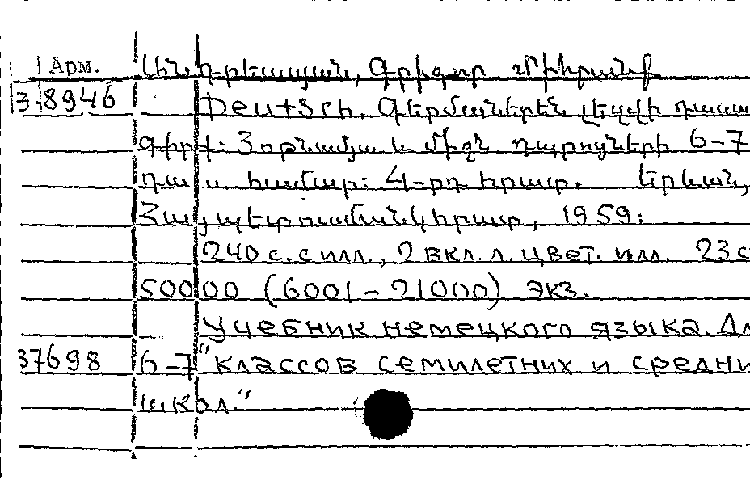 Арм.
Գրիգոր Միհրանի
3.8946 Deutsch. Գերմաներեն լեզվի դասա
գիրք: Յոթնամյա և միջն. դպրոցների 6-7
դաս. համար: 4-րդ հրատ. Երևան,
Հայպետուսմանկհրատ, 1959:
240 с. с илл., 2 вкл. л. цвет. илл. 23 с
50000 (6001-21000) экз.
Учебник немецкого языка. Дл
37698 6-7 "классов семилетних и средни
школ."